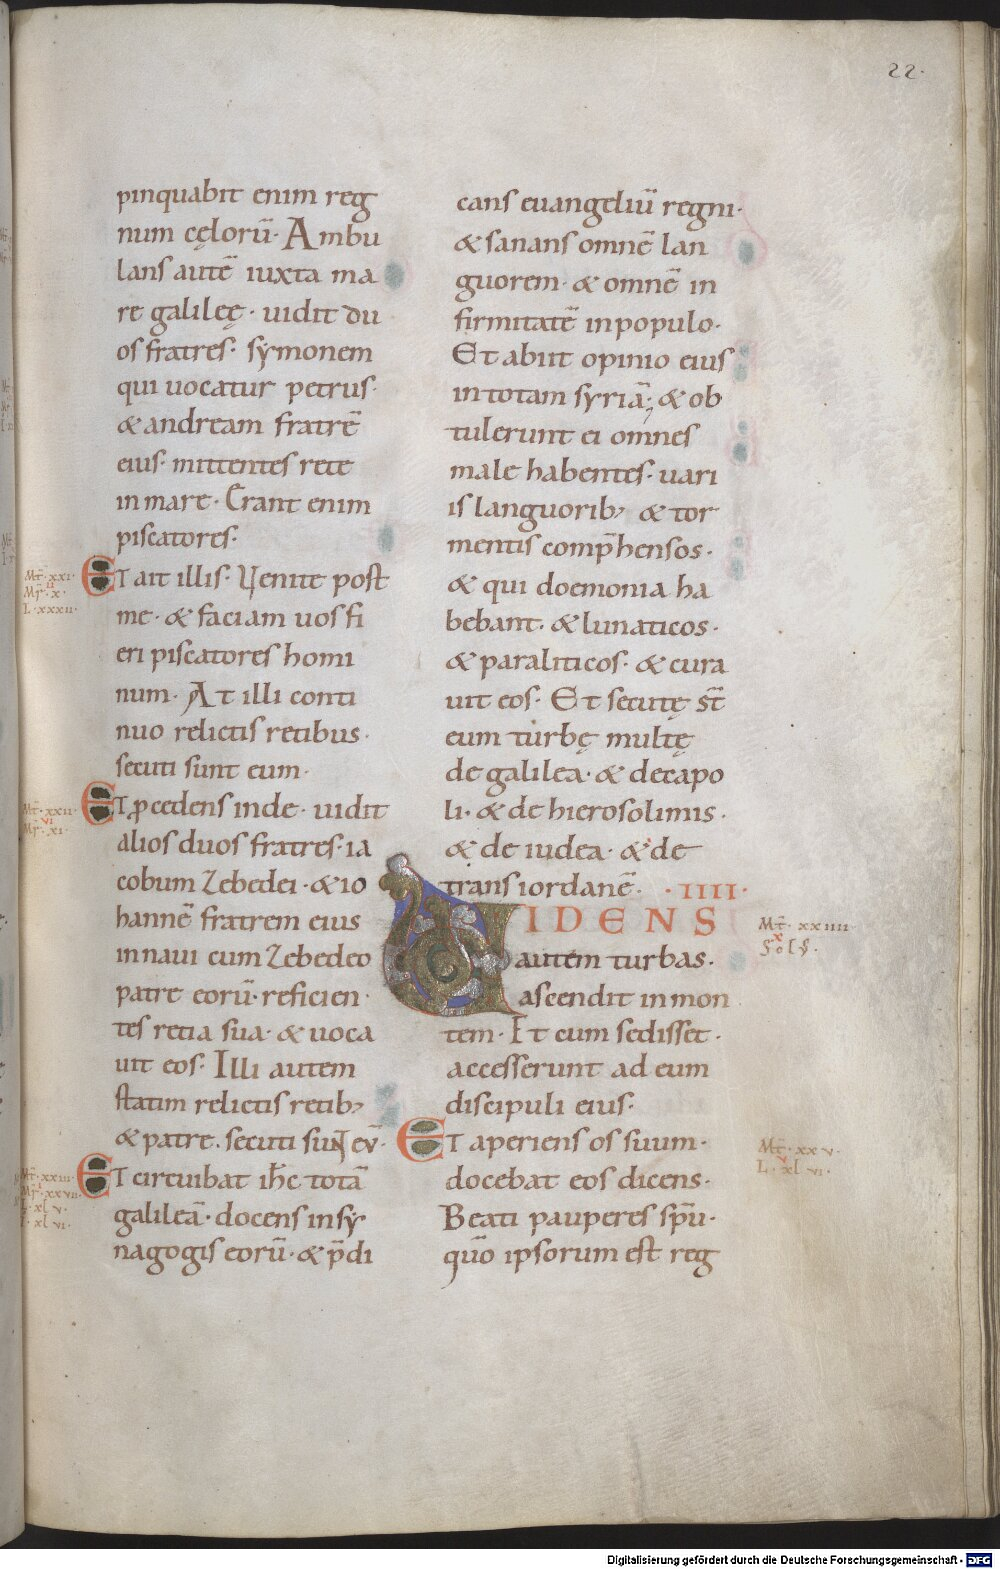 22.
pinquabit enim reg
num cęlorū· Ambu
lans autē iuxta ma
re galileę· uidit du
os fratres· sẏmonem
qui uocatur petrus·
& andream fratrē
eius· mittentes rete
in mare· Erant enim
piscatores·
Mt̄·xxi·
Mr̄·x·
ii
L·xxxii·
ET ait illis· Venite post
me· & faciam uos fi
eri piscatores homi
num· At illi conti
nuo relictis retibus·
secuti sunt eum·
Mt̄·xxii·
vi
Mr̄·xi·
ET ꝓcedens inde· uidit
alios duos fratres· ia
cobum Zebedei· & io
hannē fratrem eius
in naui cum Zebedeo
patre eorū· reficien·
tes retia sua· & uoca
uit eos· Illi autem
statim relictis retibꝫ
& patre· secuti sunt eū·
Mt̄·xxiii·
i
Mr̄·xxvii·
L·xl v·
I·xl vi·
ET circuibat ih̄c totā
galileā· docens in sẏ
nagogis eorū· & p̄di
cans euangeliū regni·
& sanans omnē lan
guorem· & omnē in
firmitatē in populo·
Et abiit opinio eius
in totam sẏriā; & ob
tulerunt ei omnes
male habentes· uari
is languoribꝫ & tor
mentis comp̄hensos·
& qui doemonia ha
bebant· & lunaticos·
& paraliticos· & cura
uit eos· Et secutę st̄
eum turbę multę
de galilea· & decapo
li· & de hierosolimis·
& de iudea· & de
trans iordanē· ·IIII·
VIDENS
autem turbas·
ascendit in mon
tem· Et cum sedisset·
accesserunt ad eum
discipuli eius·
Mt̄·xxiiii·
x
ET aperiens os suum·
docebat eos dicens·
Beati pauperes sp̄u·
qūo ipsorum est reg
Mt̄·xxv·
v
L·xl vi·
Digitalisierung gefördert durch die Deutsche Forschungsgemeinschaft - DFG